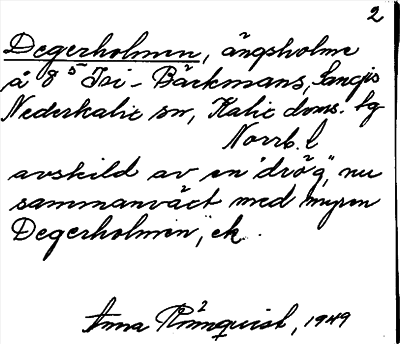 2
Degerholmen, ängsholme
å 8⁵ Isi - Bäckmans, Sangis
Nederkalix sn, Kalix doms. lg
Norrb. l
avskild av en "drög", nu
sammanväxt med myren
"Degerholmen", ek.
Anna Rönnquist, 1949